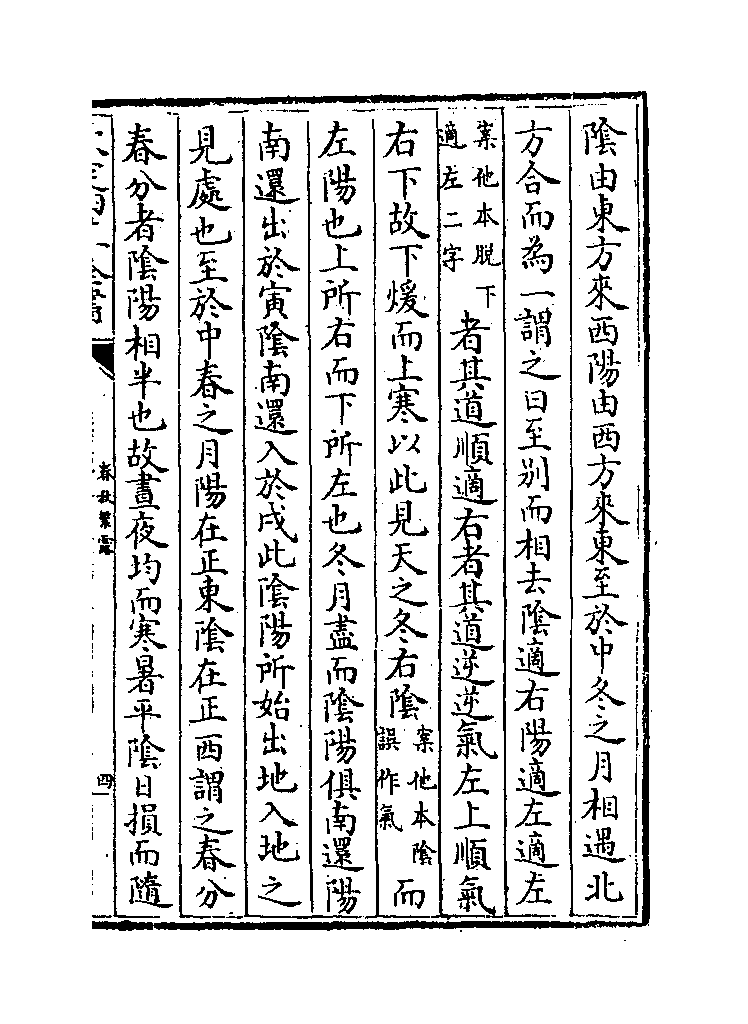 陰由東方來西陽由西方來東至於中冬之月相遇北
方合而為一謂之曰至别而相去陰適右陽適左適左
案他本脱下
適左二字
者其道順適右者其道逆逆氣左上順氣
右下故下煖而上寒以此見天之冬右陰
案他本陰
誤作氣
而
左陽也上所右而下所左也冬月盡而陰陽俱南還陽
南還出於寅陰南還入於戌此陰陽所始出地入地之
見處也至於中春之月陽在正東陰在正西謂之春分
春分者陰陽相半也故晝夜均而寒暑平陰日損而隨
春秋繁露
四